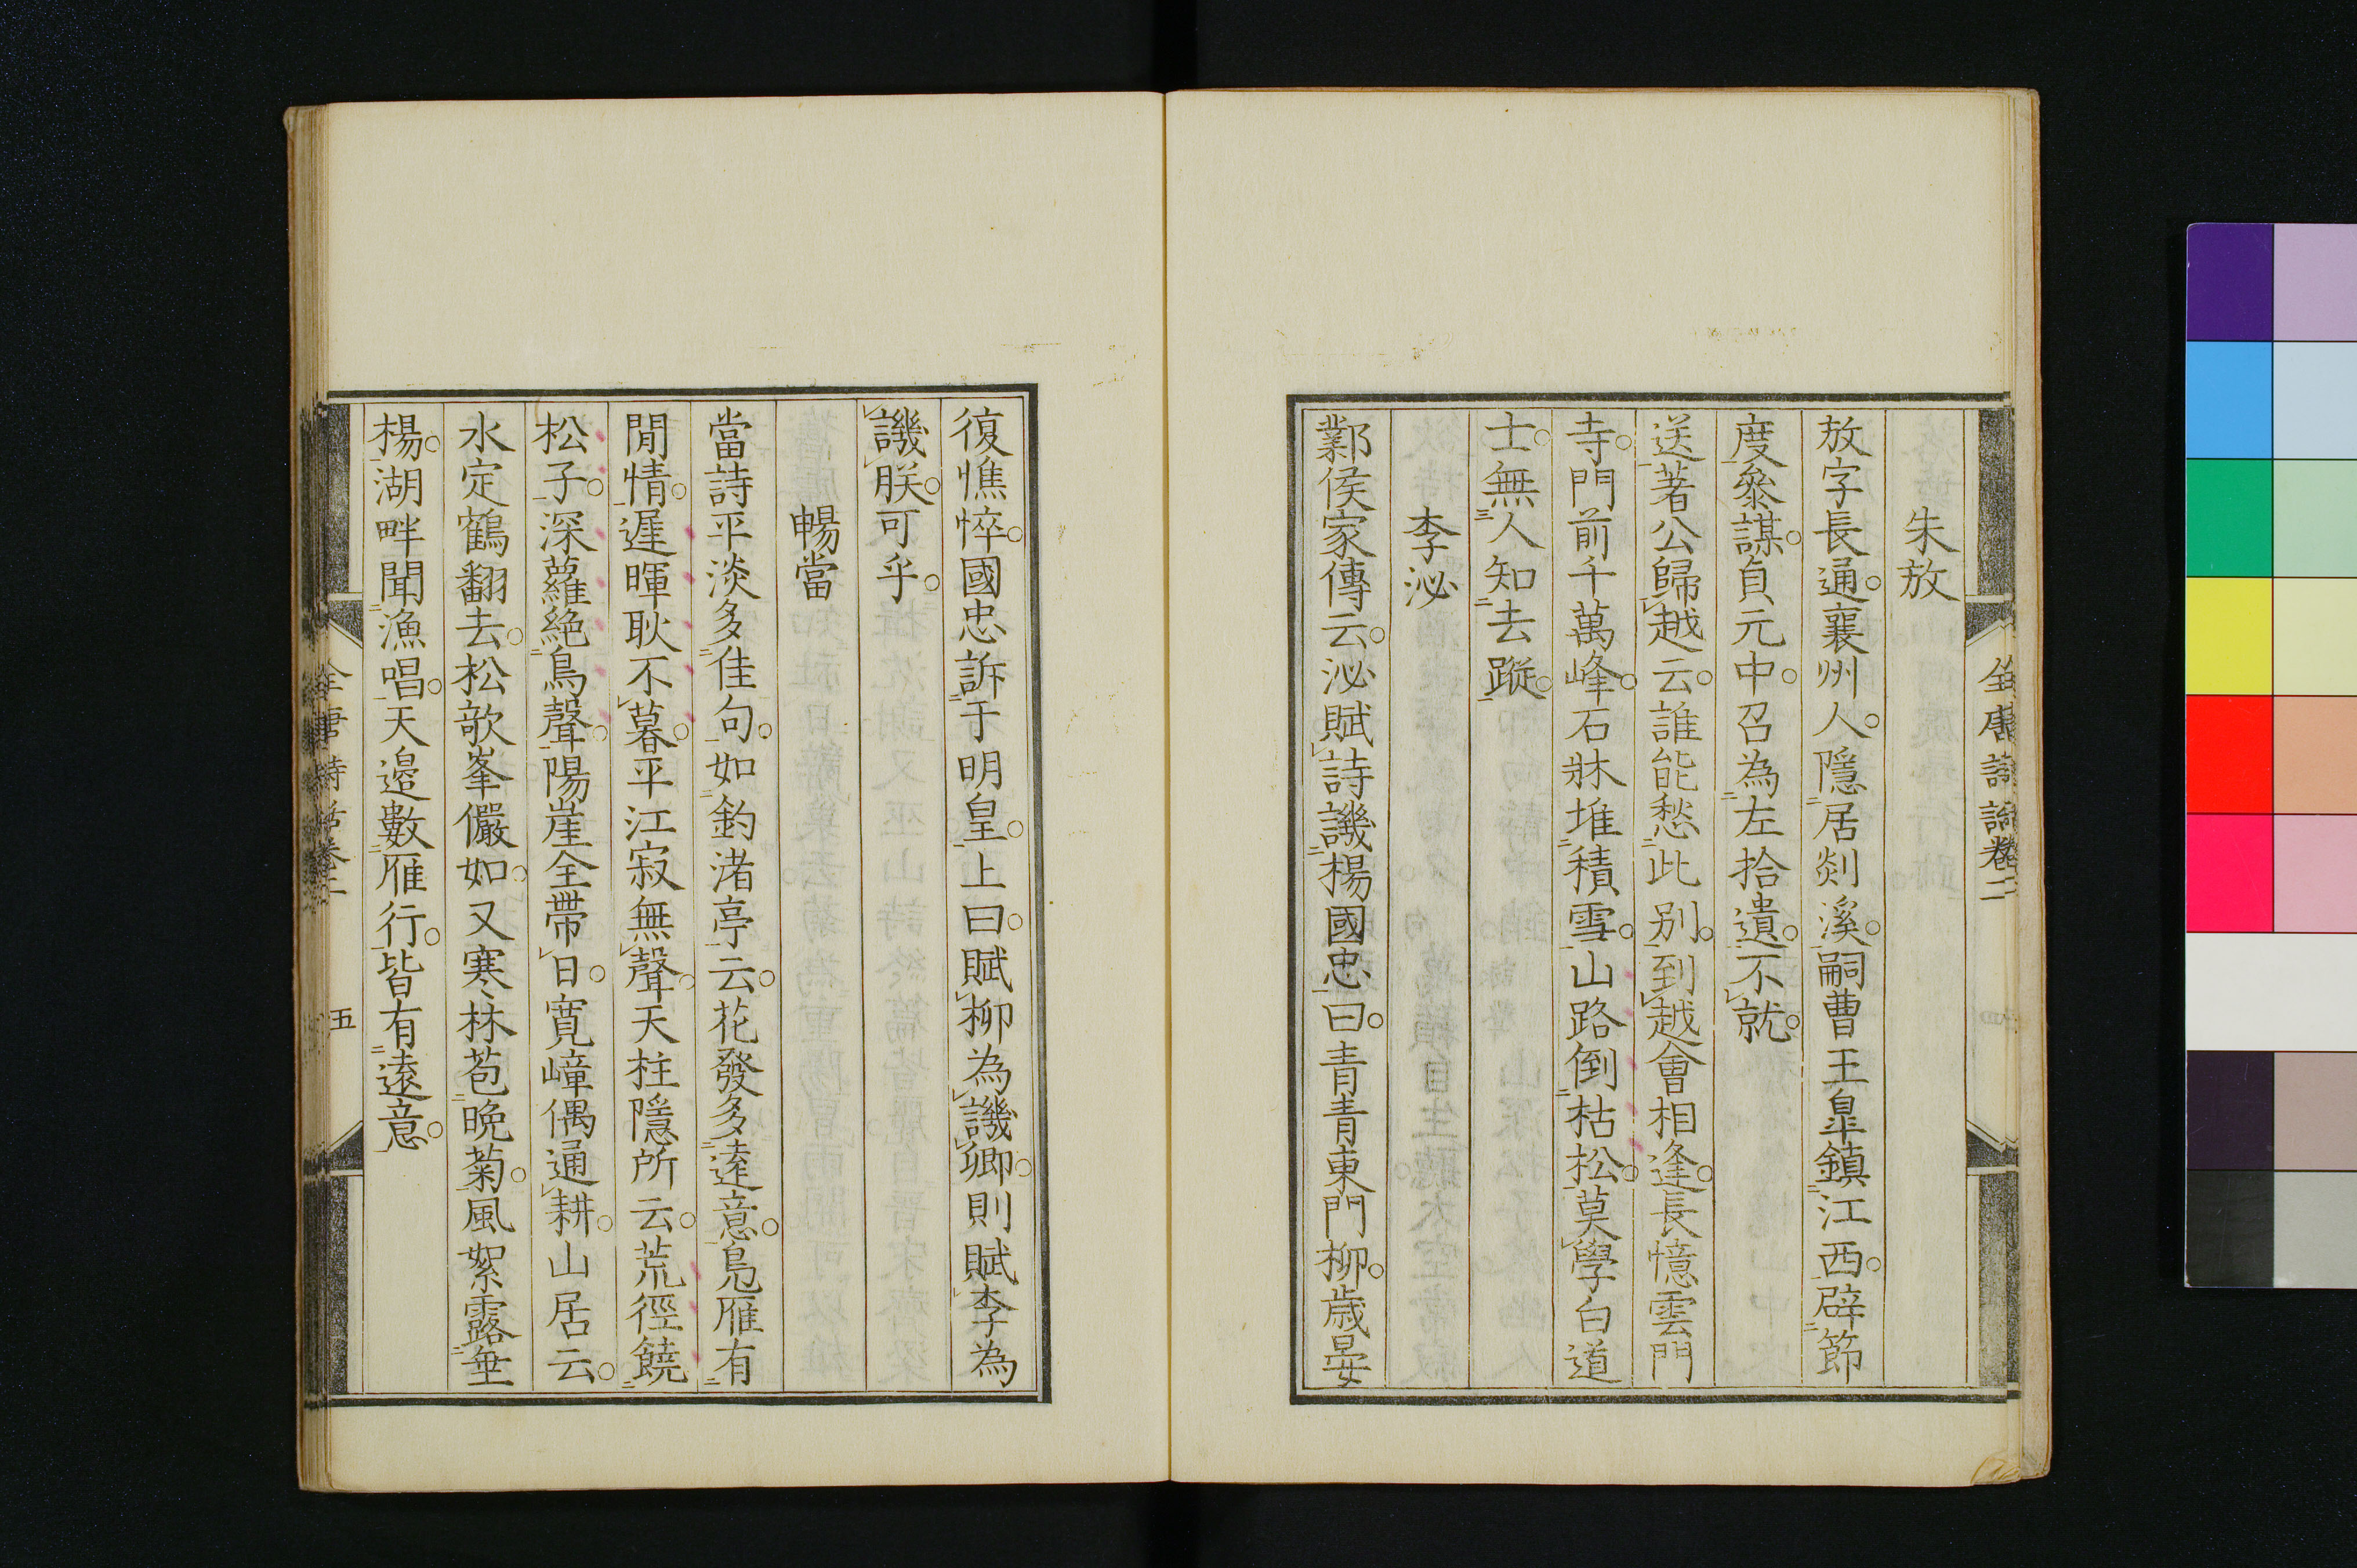 朱放
放字長通。襄州人。隱居剡溪。嗣曹王皐鎮江西。辟節
度參謀。貞元中。召為左拾遺。不就。
送著公歸越云。誰能愁此别。到越會相逢。長憶雲門
寺。門前千萬峰。石牀堆積雪。山路倒枯松。莫學白道
士。無人知去蹤。
李泌
鄴侯家傳云。泌賦詩譏楊國忠曰。青青東門柳。歳晏
復憔悴。國忠訴于明皇。上曰。賦柳為譏卿。則賦李為
譏朕。可乎。
暢當
當詩平淡多佳句。如釣渚亭云。花發多遠意。鳬雁有
閒情。遲暉耿不暮。平江寂無聲。天柱隱所云。荒徑饒
松子。深蘿絶鳥聲。陽崖全帶日。寛嶂偶通耕。山居云。
水定鶴翻去。松欹峯儼如。又寒林苞晩菊。風絮露垂
楊。湖畔聞漁唱。天邉數雁行。皆有遠意。
全唐詩話卷二
五